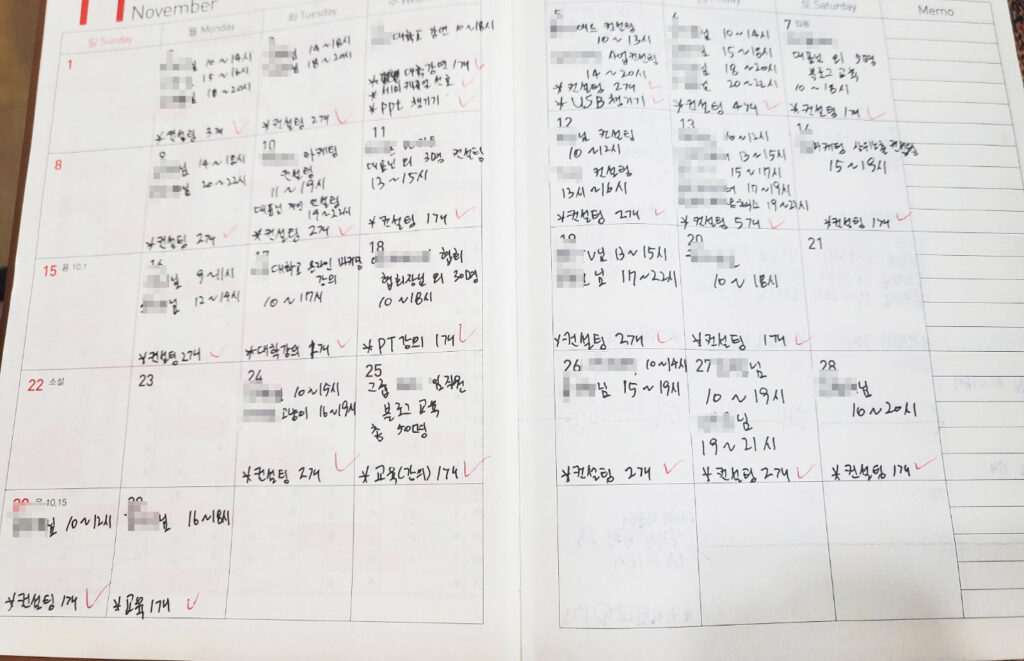 11
November
일 Sunday
월 Monday
화 Tuesday
수
토 Saturday
Memo
1
10~14시
15~16시
18~20시
*컨설팅 3개
14~18시
18~20시
*컨설팅 2개
대학교 강연 10~18시
대학강연 1개
*ppt 챙기기
5
컨설팅
10~13시
사업컨설팅
14~20시
*컨설팅 2개
*USB 챙기기
6
님 10~14시
님 15~18시
님 18~20시
님 20~22시
*컨설팅 4개
7
대표님 외 5명
블로그 교육
10~18시
*컨설팅 1개
8
9
14~18시
20~22시
*컨설팅 2개
10
마케팅
컨설팅
11~19시
대표님 개인 컨설팅
19~22시
*컨설팅 2개
11
대표님 외 3명 컨설팅
13~15시
*컨설팅 1개
12
님 컨설팅
10~12시
컨설팅
13시~16시
*컨설팅 2개
13
10~12시
13~15시
15~17시
17~19시
19~21시
*컨설팅 5개
14
마케팅 상위노출 컨설팅
15~19시
*컨설팅 1개
15 음 10.1
16
님 9~11시
님 12~19시
*컨설팅 2개
17
대학교 온라인 마케팅
강의
10~17시
*대학강의 1개
18
협회
협회장님 외 30명
10~18시
*PT강의 1개
19
님 13~15시
님 17~22시
*컨설팅 2개
20
10~18시
*컨설팅 1개
21
22 소설
23
24
10~15시
고냥이 16~19시
*컨설팅 2개
25
그룹 임직원
블로그 교육
총 50명
*교육(강의) 1개
26
10~14시
님 15~19시
*컨설팅 2개
27
님
10~19시
님
19~21시
*컨설팅 2개
28
님
10~20시
*컨설팅 1개
29 음 10.15
님 10~12시
*컨설팅 1개
30
님 16~18시
*교육 1개